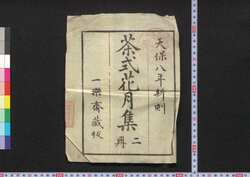 天保八年新刻
茶式花月集 二冊
一樂齋藏板